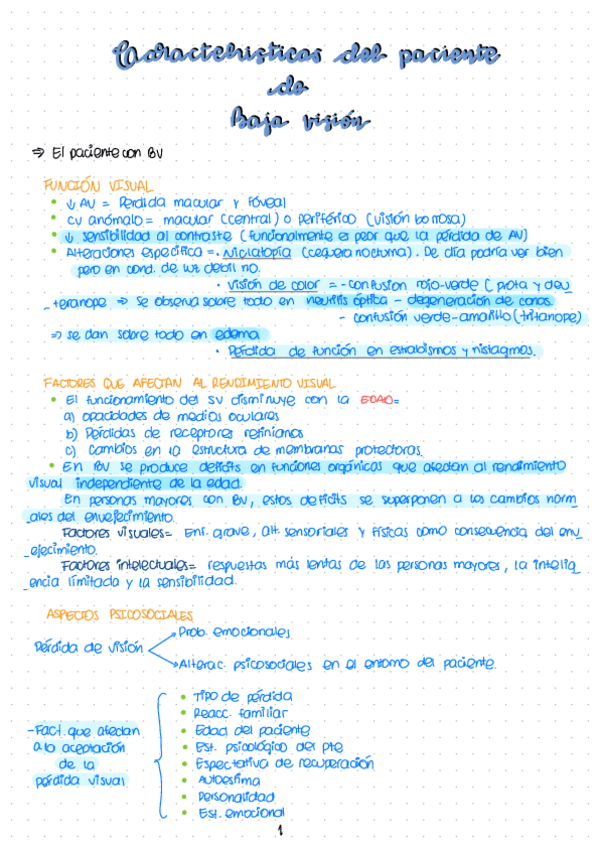 Características del paciente
de
Baja visión
⇒ El paciente con BV
FUNCIÓN VISUAL
• ↓ AV = Perdida macular y foveal
• CV anómalo = macular (central) o periférico (visión borrosa)
• ↓ sensibilidad al contraste (funcionalmente es peor que la pérdida de AV)
• Alteraciones específica = • Niplatopía (ceguera nocturna). De día podría ver bien
pero en cond. de luz debil no.
• Visión de color = - confusion rojo-verde (prota y deu
_teranope ⇒ se observa sobre todo en neuritis óptica - degeneración de conos.
- confusión verde-amarillo (tritanope)
⇒ se dan sobre todo en edema
• Pérdida de función en estrabismos y nistagmos.
FACTORES QUE AFECTAN AL RENDIMIENTO VISUAL
• El funcionamiento del SV disminuye con la EDAD=
a) opacidades de medios oculares
b) Pérdidas de receptores retinianos
c) Cambios en la estructura de membranas protectoras.
• En BV se produce deficits en funciones orgánicas que afectan al rendimiento
visual independiente de la edad.
En personas mayores con BV, estos deficits se superponen a los cambios norm
_ales del envejecimiento.
Factores visuales= Enf. grave, alt. sensoriales y físicas como consecuencia del env
_ejecimiento.
Factores intelectuales= respuestas más lentas de las personas mayores, la intelig
_encia limitada y la sensibilidad.
ASPECTOS PSICOSOCIALES
Pérdida de visión
Prob. emocionales
Alterac. psicosociales en el entorno del paciente.
- Fact. que afectan
a la aceptación
de la
pérdida visual
• Tipo de pérdida
• Reacc. familiar
• Edad del paciente
• Est. psicológico del pte
• Espectativa de recuperación
• Autoestima
• Personalidad
• Est. emocional
1